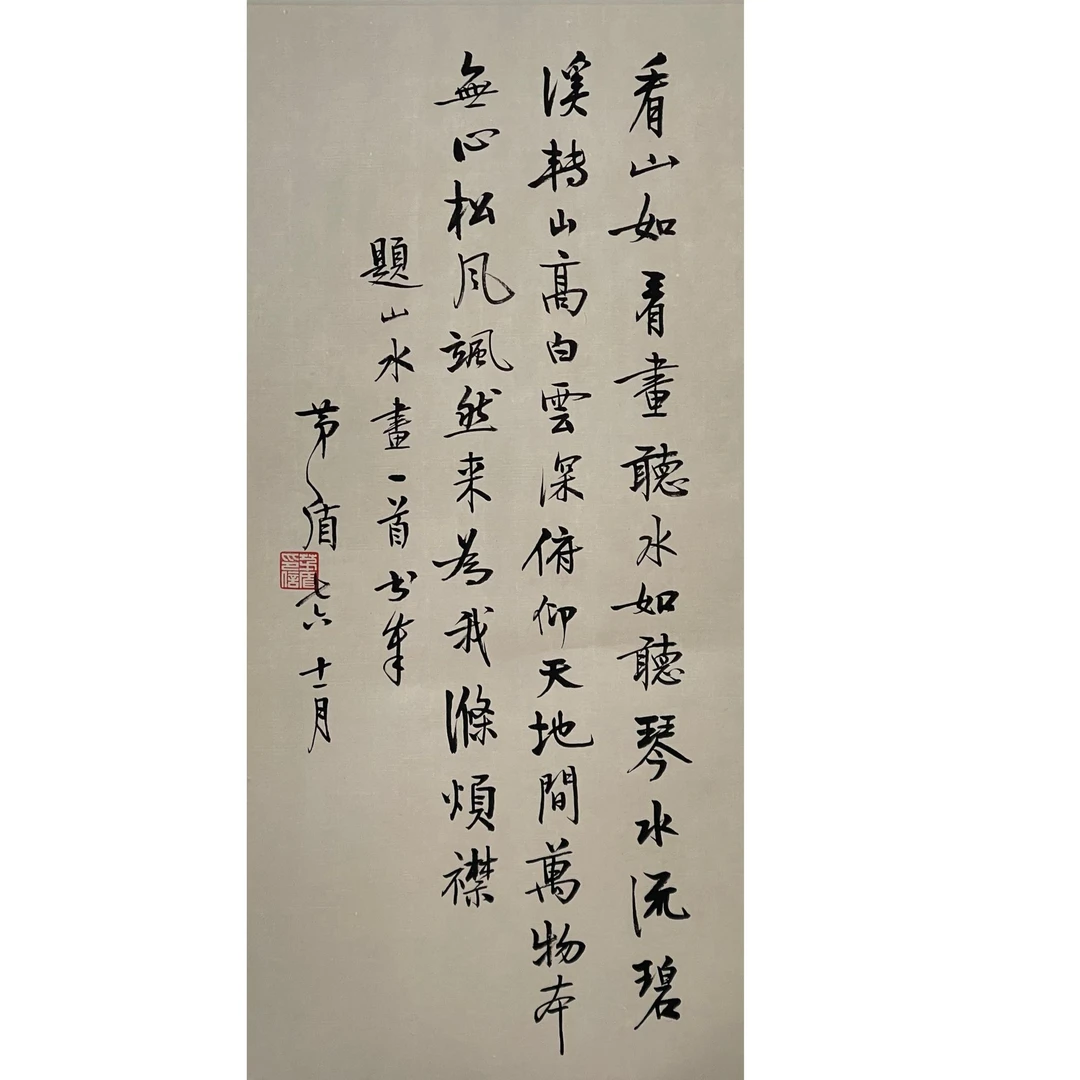 看山如看畫聽水如聽琴水流碧
溪轉山高白雲深俯仰天地間萬物本
無心松風颯然来為我滌煩襟
題山水畫一首书奉
茅盾 七六 十一月
茅盾印信